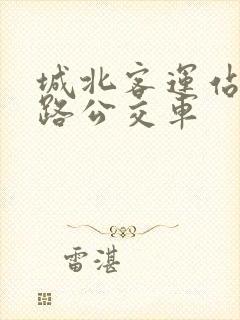 城北客運佔
路公交車
雷湛